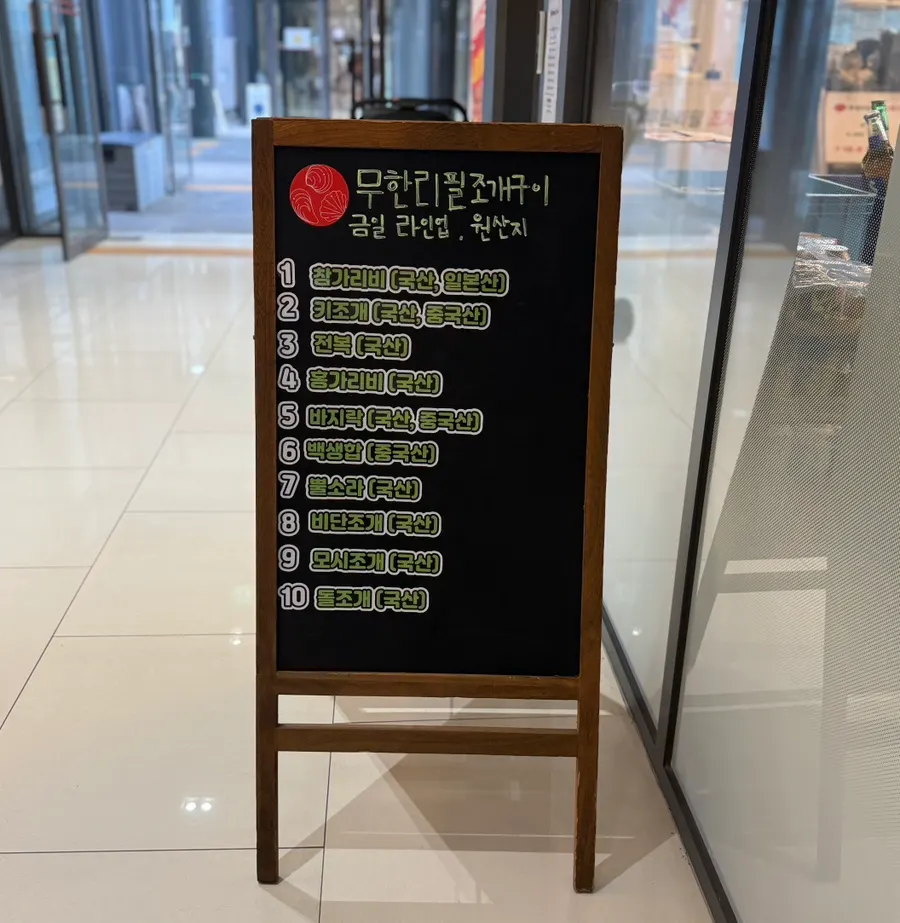 무한리필조개구이
금일 라인업 . 원산지
1 참가리비 (국산, 일본산)
2 키조개 (국산, 중국산)
3 전복 (국산)
4 홍가리비 (국산)
5 바지락 (국산, 중국산)
6 백생합 (중국산)
7 뿔소라 (국산)
8 비단조개 (국산)
9 모시조개 (국산)
10 돌조개 (국산)